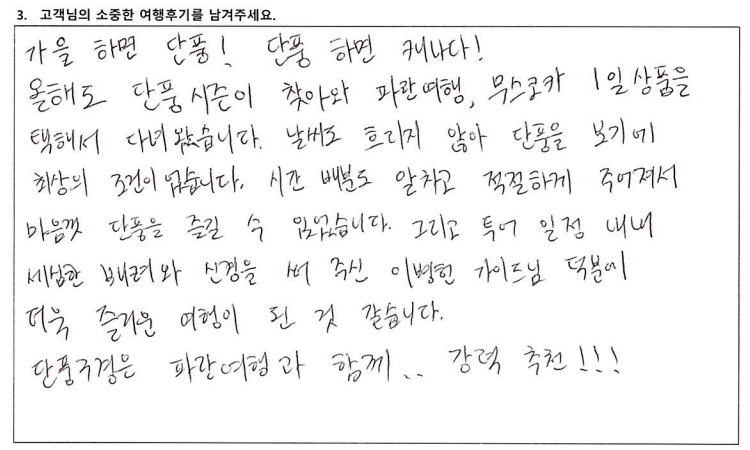 3. 고객님의 소중한 여행후기를 남겨주세요.
가을 하면 단풍! 단풍 하면 캐나다!
올해도 단풍시즌이 찾아와 파란여행, 무스코카 1일상품을
택해서 다녀왔습니다. 날씨도 흐리지 않아 단풍을 보기에
최상의 조건이었습니다. 시간 배분도 알차고 적절하게 주어져서
마음껏 단풍을 즐길 수 있었습니다. 그리고 투어 일정 내내
세심한 배려와 신경을 써 주신 이병헌 가이드님 덕분에
더욱 즐거운 여행이 된 것 같습니다.
단풍구경은 파란여행과 함께.. 강력 추천!!!